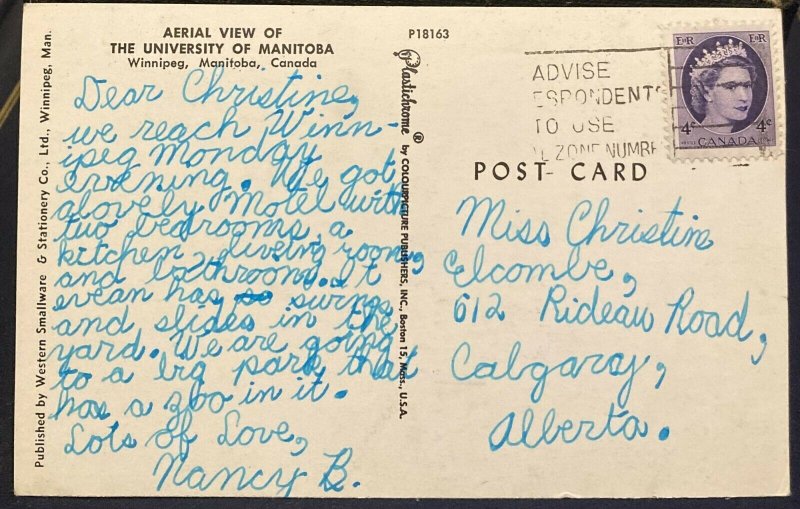 AERIAL VIEW OF
THE UNIVERSITY OF MANITOBA
Winnipeg, Manitoba, Canada
P18163
Dear Christine,
we reach Winn-
ipeg monday
evening. We got
a lovely Motel with
two bedrooms, a
kitchen, liveing room,
and bathroom. It
evean has swings
and slides in the
yard. We are going
to a big park that
has a zoo in it.
Lots of Love,
Nancy B.
Published by Western Smallware & Stationery Co., Ltd., Winnipeg, Man.
Plastichrome ® by COLOURPICTURE PUBLISHERS, INC., Boston 15, Mass., U.S.A.
ADVISE
ESPONDENTS
TO USE
L ZONE NUMBE
E II R E II R
4c 4c
CANADA
POST CARD
Miss Christine
Elcombe,
612 Rideau Road,
Calgary,
Alberta.